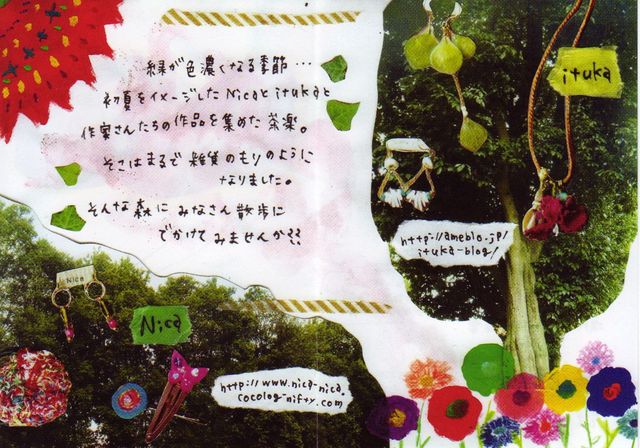 緑が色濃くなる季節…
初夏をイメージしたNicaとitukaと
作家さんたちの作品を集めた茶楽。
そこはまるで雑貨のもりのように
なりました。
そんな森に みなさん散歩に
でかけてみませんか??
ituka
http://ameblo.jp/
ituka-blog/
Nica
Nica
http://www.nica-nica.
cocolog-nifty.com